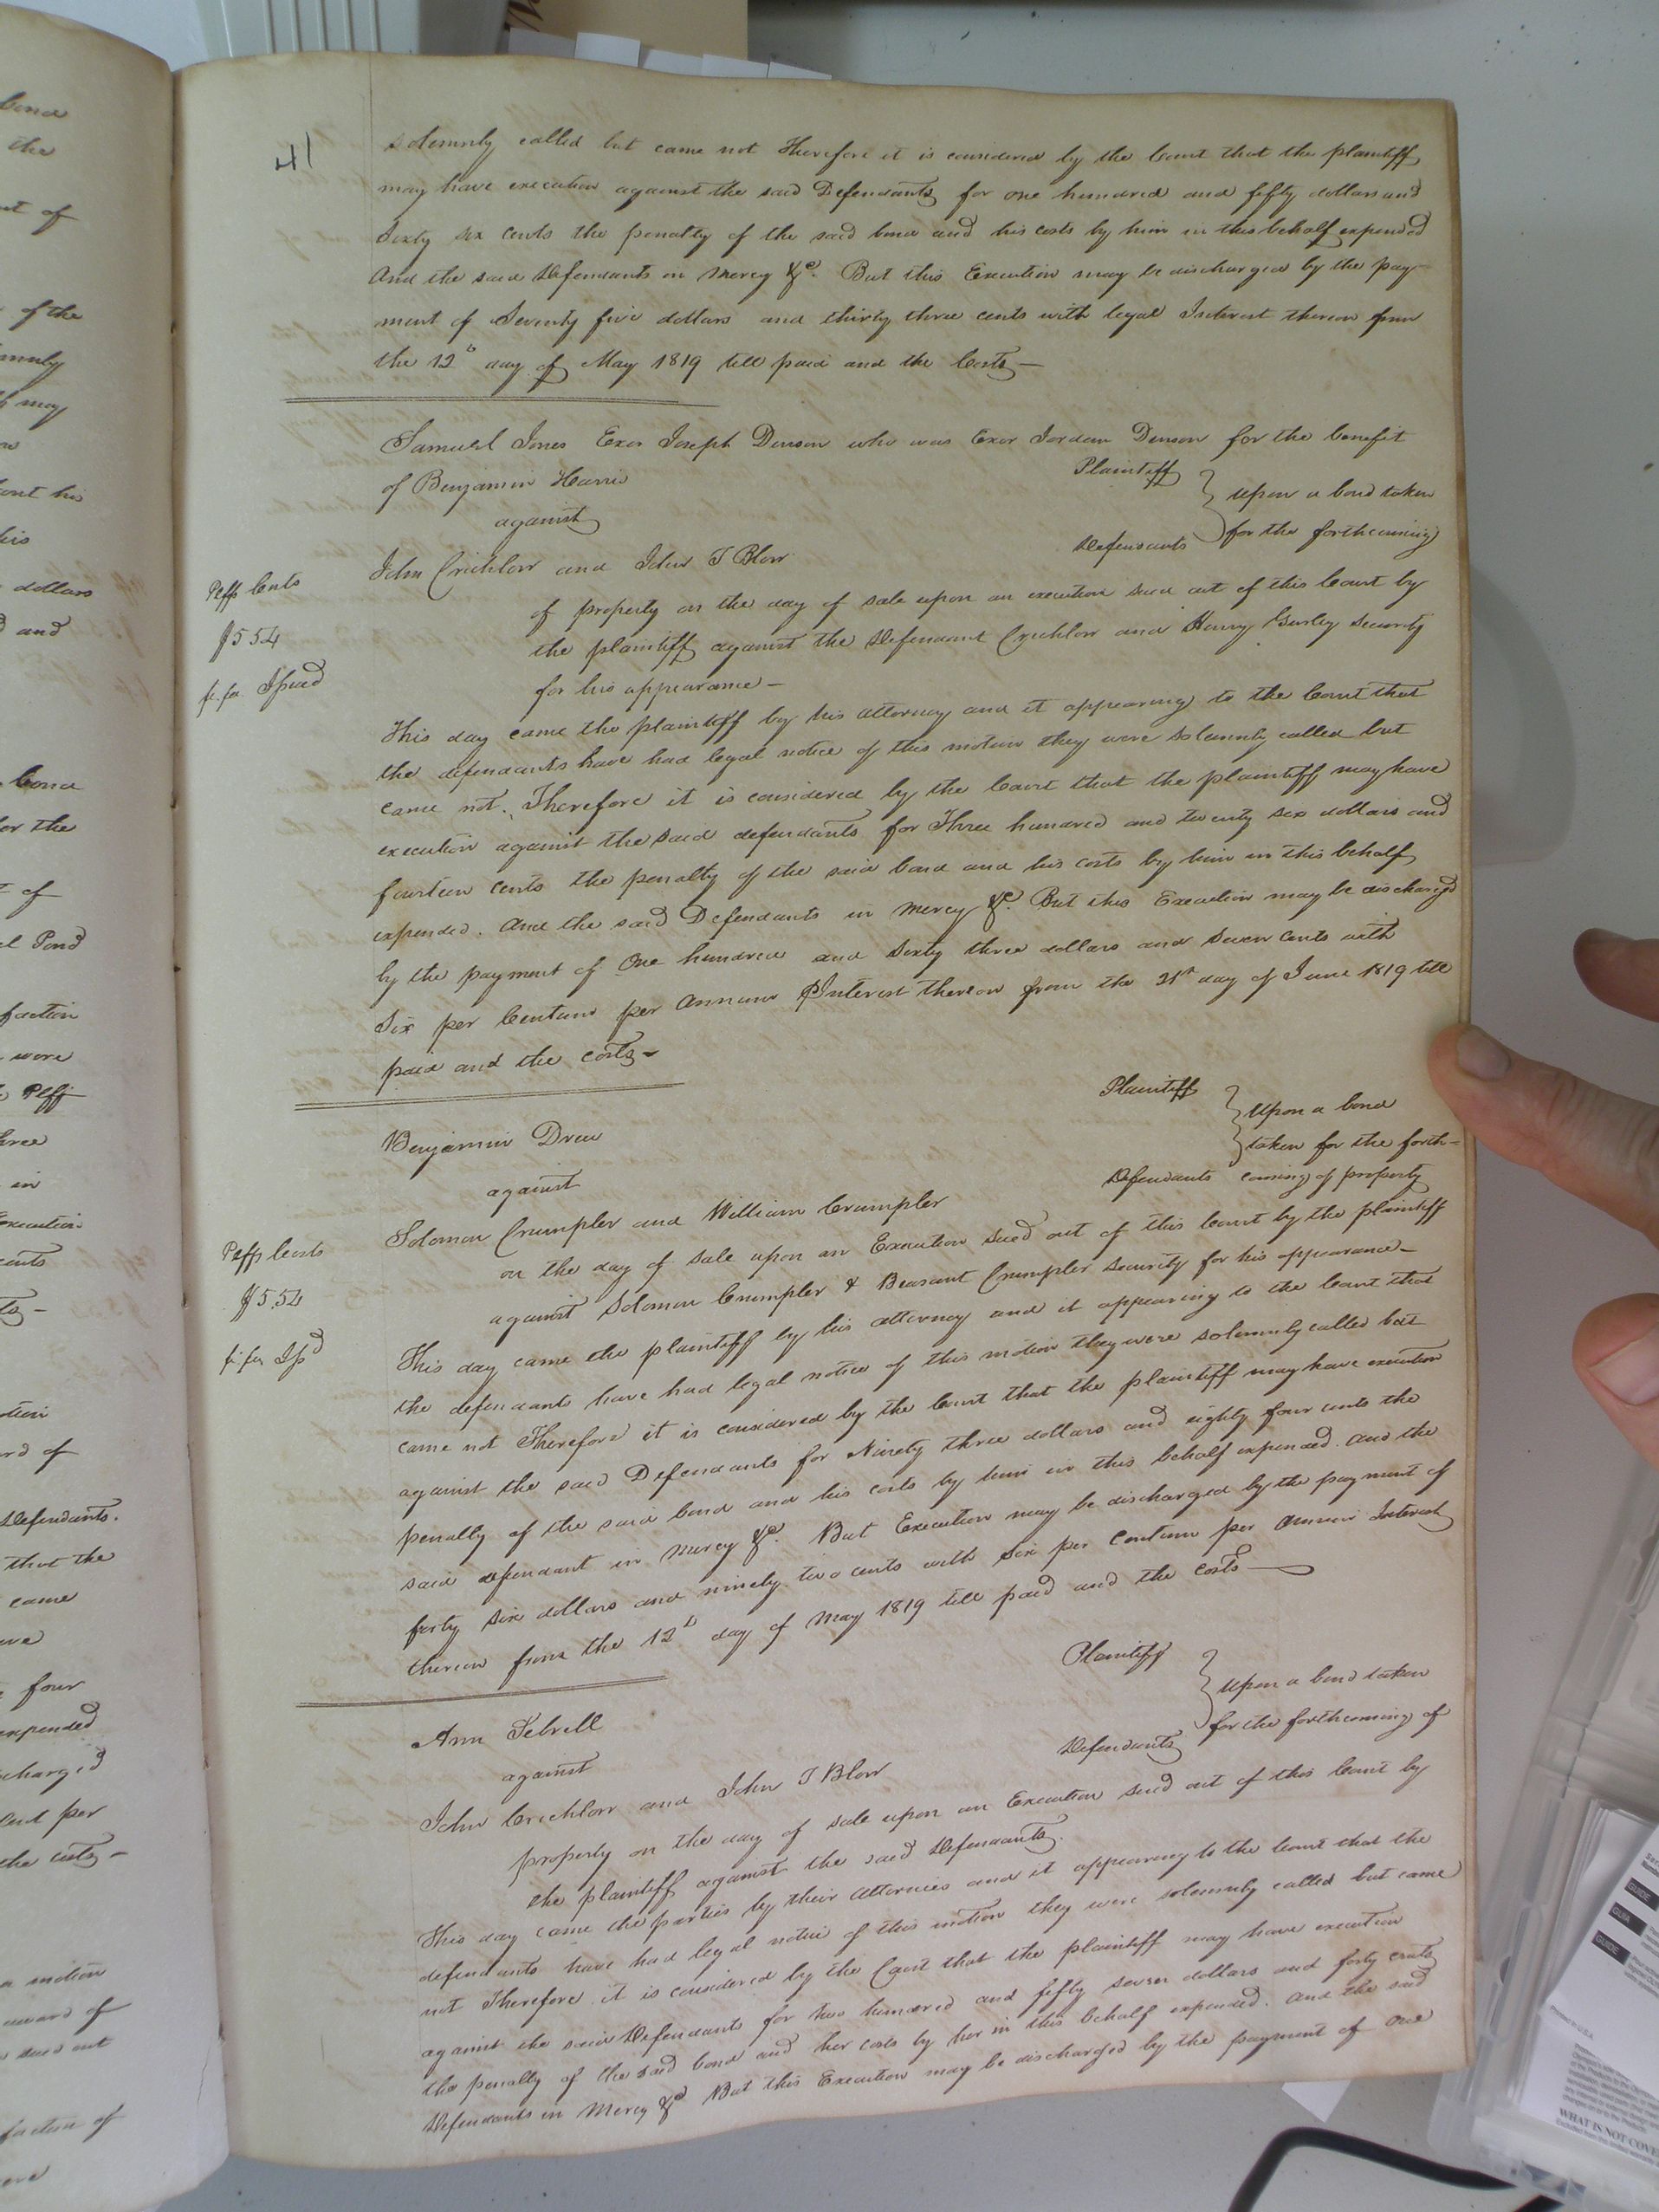 41
solemnly called but came not Therefore it is considered by the Court that the plaintiff
may have execution against the said Defendants for one hundred and fifty dollars and
Sixty six cents the penalty of the said bond and his costs by him in this behalf expended
And the said Defendants in mercy &c. But this Execution may be discharged by the pay-
ment of Seventy five dollars and thirty three cents with legal Interest thereon from
the 12th day of May 1819 till paid and the Costs—
Samuel Jones Exor Joseph Denson who was Exor Jordan Denson for the benefit
of Benjamin Harris Plaintiff
against
upon a bond taken
John Crichlow and John T Blow Defendants
for the forthcoming
of property on the day of sale upon an execution sued out of this Court by
the plaintiff against the Defendant Crichlow and Henry Gurley Security
for his appearance—
Plffs Costs
$5 54
fi. fa. Issued
This day came the plaintiff by his attorney and it appearing to the Court that
the defendants have had legal notice of this motion they were solemnly called but
came not. Therefore it is considered by the Court that the plaintiff may have
execution against the said defendants for Three hundred and twenty six dollars and
fourteen cents the penalty of the said bond and his costs by him in this behalf
expended. And the said Defendants in mercy &c. But this Execution may be discharged
by the payment of One hundred and Sixty three dollars and Seven Cents with
Six per Centum per Annum Interest thereon from the 21st day of June 1819 till
paid and the costs—
Benjamin Drew Plaintiff
against
Upon a bond
taken for the forth-
Solomon Crumpler and William Crumpler Defendants
coming of property
on the day of sale upon an Execution sued out of this Court by the plaintiff
against Solomon Crumpler & Beasant Crumpler Security for his appearance—
Plffs Costs
$5.54
fi fa Isd
This day came the plaintiff by his attorney and it appearing to the Court that
the defendants have had legal notice of this motion they were solemnly called but
came not Therefore it is considered by the Court that the plaintiff may have execution
against the said Defendants for Ninety three dollars and eighty four cents the
penalty of the said bond and his costs by him in this behalf expended. And the
said defendant in mercy &c. But Execution may be discharged by the payment of
forty six dollars and ninety two cents with Six per Centum per Annum Interest
thereon from the 12th day of May 1819 till paid and the costs—
Ann Sebrell Plaintiff
against
upon a bond taken
for the forthcoming of
John Crichlow and John T Blow Defendants
property on the day of sale upon an Execution sued out of this Court by
the plaintiff against the said Defendants.
This day came the parties by their Attornies and it appearing to the Court that the
defendants have had legal notice of this motion they were solemnly called but came
not Therefore it is considered by the Court that the plaintiff may have execution
against the said Defendants for two hundred and fifty seven dollars and forty cents
the penalty of the said bond and her costs by her in this behalf expended. And the said
Defendants in Mercy &c But this Execution may be discharged by the payment of one